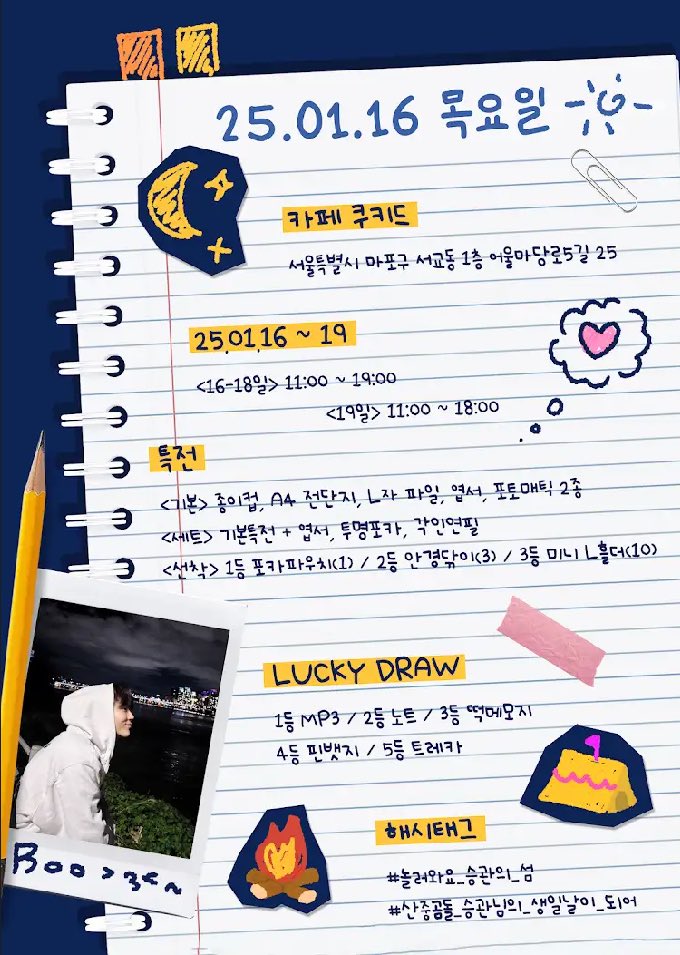 25.01.16 목요일
카페 쿠키드
서울특별시 마포구 서교동 1층 어울마당로5길 25
25.01.16 ~ 19
<16-18일> 11:00 ~ 19:00
<19일> 11:00 ~ 18:00
특전
<기본> 종이컵, A4 전단지, L자 파일, 엽서, 포토매틱 2종
<세트> 기본특전 + 엽서, 투명포카, 각인연필
<선착> 1등 포카파우치(1) / 2등 안경닦이(3) / 3등 미니 L홀더(10)
LUCKY DRAW
1등 MP3 / 2등 노트 / 3등 떡메모지
4등 핀뱃지 / 5등 트레카
Boo >3<~
해시태그
#놀러와요_승관의_섬
#산중곰돌_승관님의_생일날이_되어